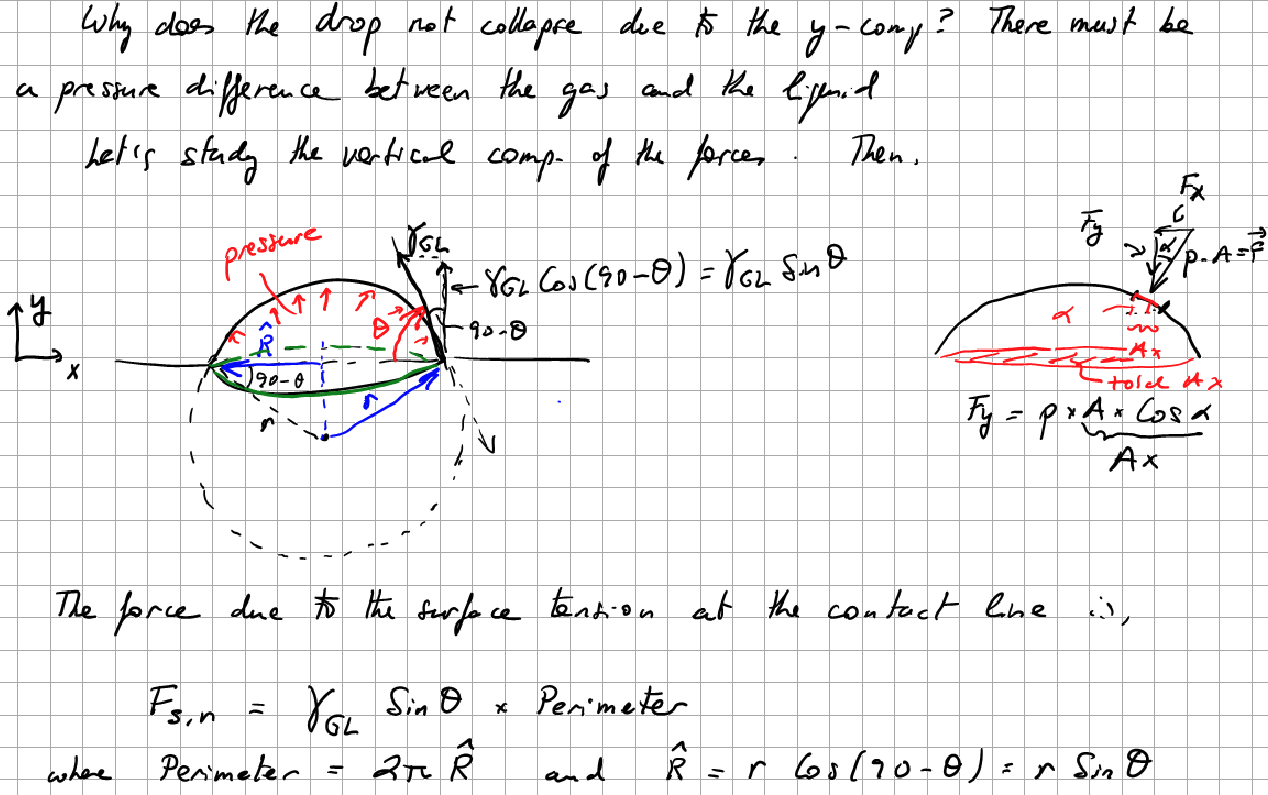 Why does the drop not collapse due to the y-comp? There must be
a pressure difference between the gas and the liquid
Let's study the vertical comp. of the forces. Then,
pressure
γGL
γGL Cos(90-θ) = γGL Sin θ
θ
90-θ
R̂
90-θ
r
r
y
x
Fx
Fy
α
p·A = F⃗
α
Ax
total Ax
Fy = p × A × Cos α
Ax
The force due to the surface tension at the contact line is,
Fs,n = γGL Sin θ × Perimeter
where Perimeter = 2π R̂ and R̂ = r Cos(90-θ) = r Sin θ